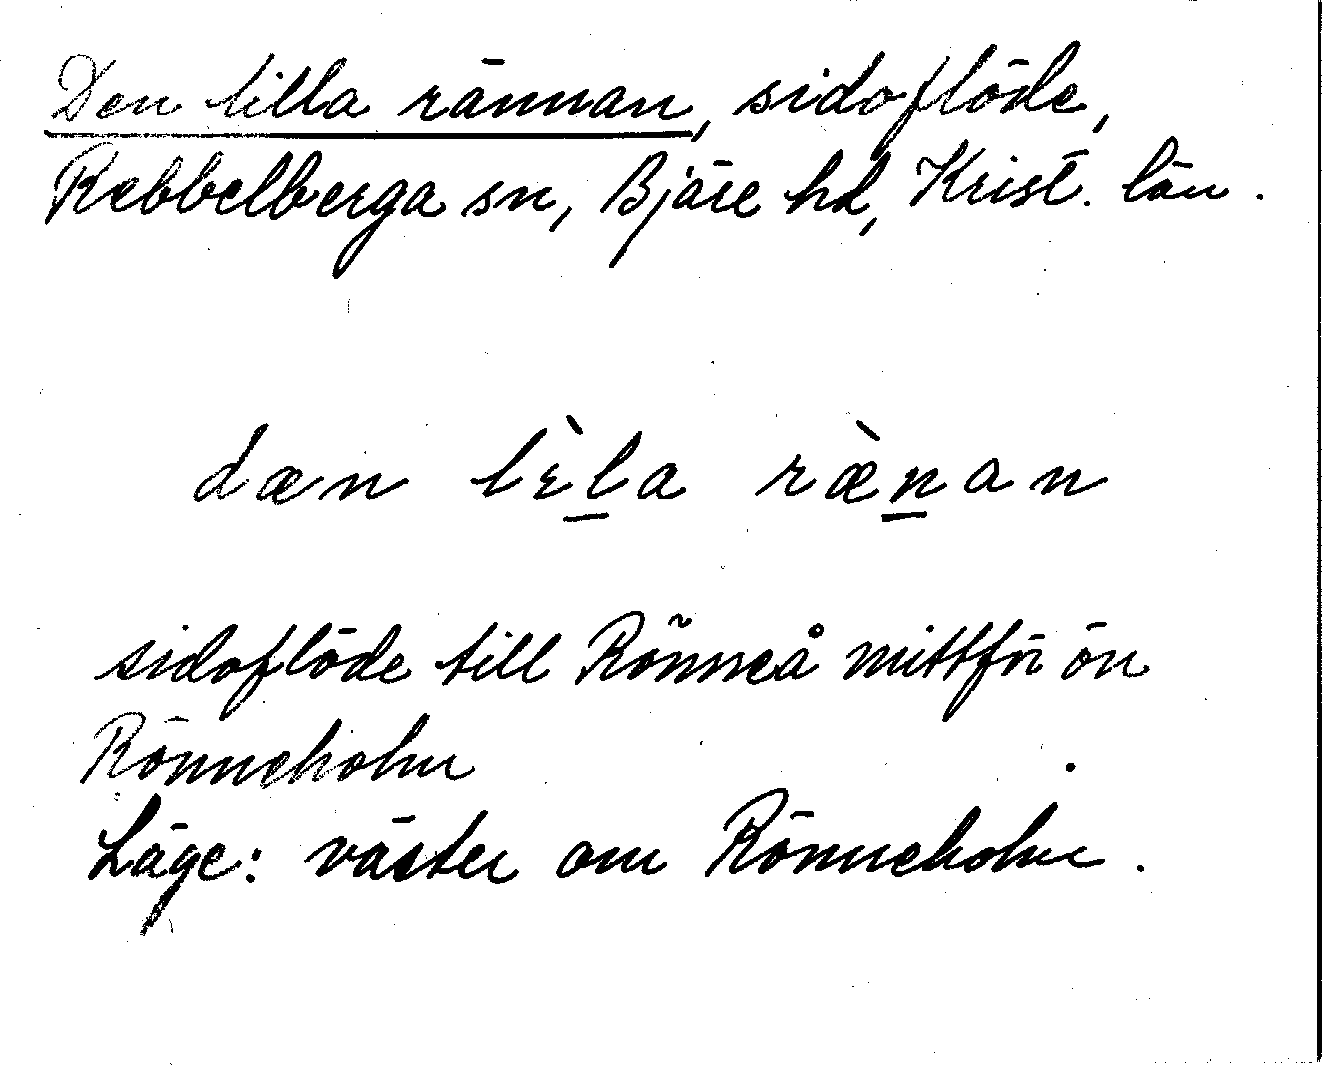 Den lilla rännan, sidoflöde,
Rebbelberga sn, Bjäre hd, Krist. län.
dæn lɛ̀l̲a ræ̀n̲an
sidoflöde till Rönneå mittför ön
Rönneholm
Läge: väster om Rönneholm.